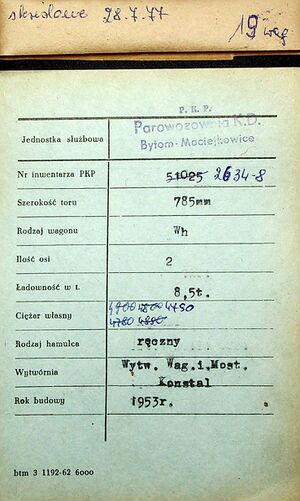 skreślone 28.7.77
19 wag
P. K. P.
Parowozownia K.D.
Bytom-Maciejkowice
Jednostka służbowa
Nr inwentarza PKP 51025 2634-8
Szerokość toru 785mm
Rodzaj wagonu Wh
Ilość osi 2
Ładowność w t. 8,5t.
Ciężar własny 4700 4800 4750
4780 4890
Rodzaj hamulca ręczny
Wytwórnia Wytw. Wag.i.Most.
Konstal
Rok budowy 1953r.
btm 3 1192-62 6000